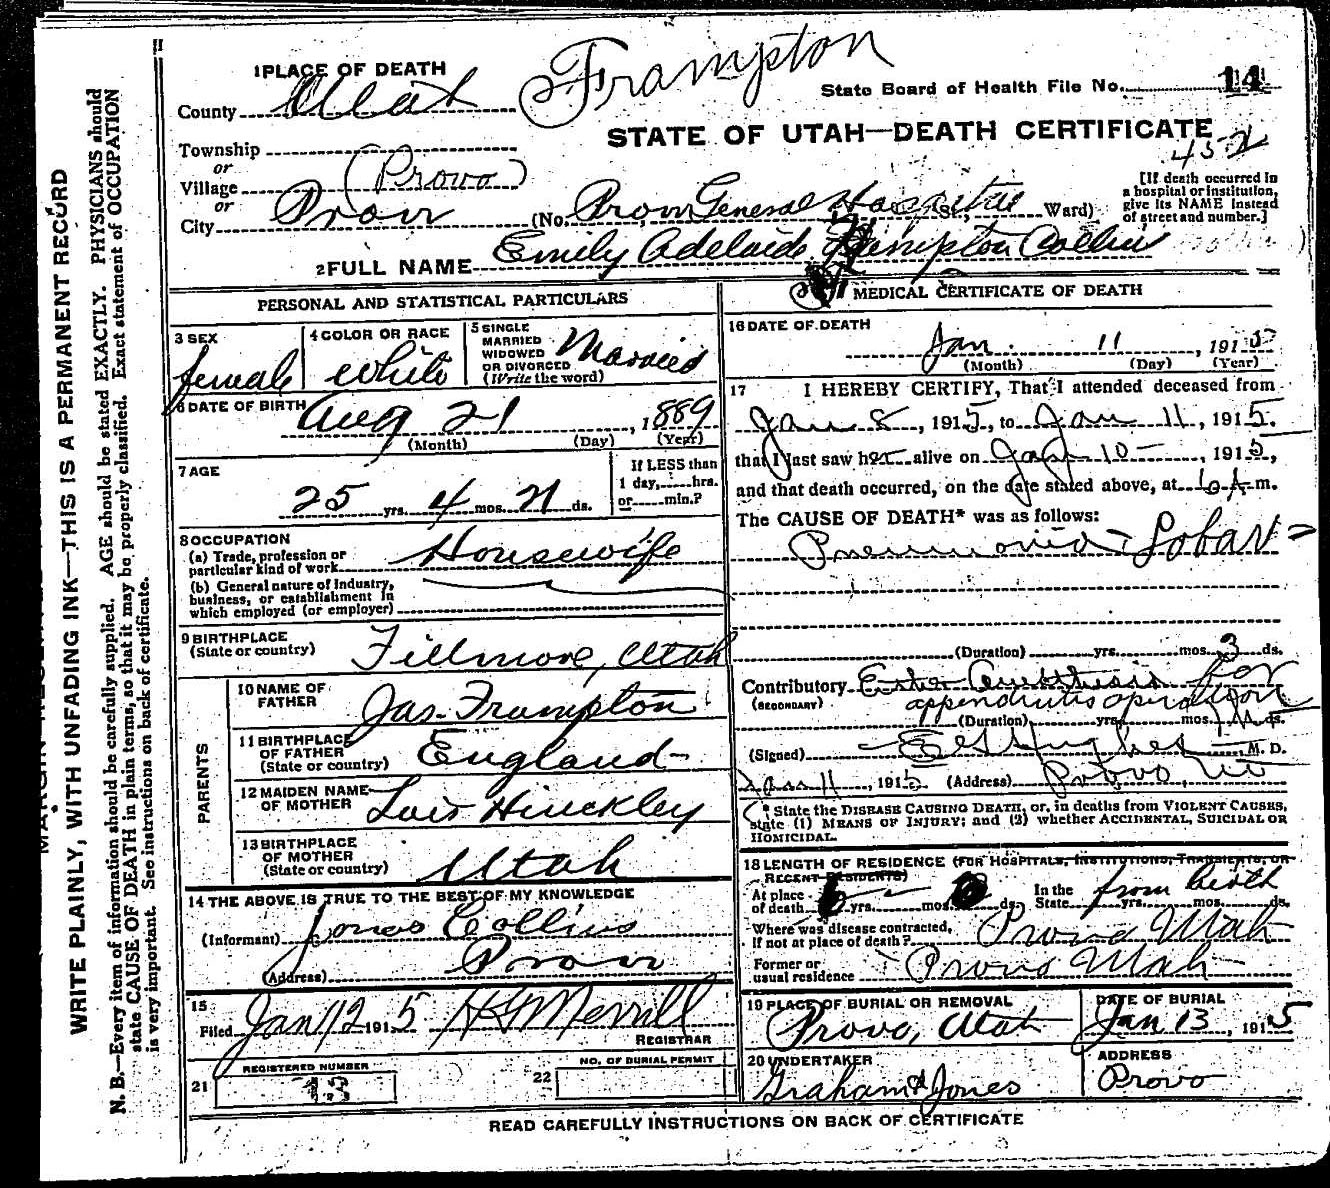 Frampton
1 PLACE OF DEATH
County Utah
State Board of Health File No. 14
STATE OF UTAH—DEATH CERTIFICATE
452
Township
or
Village (Provo)
or
City Provo (No. Provo General Hospital St., Ward)
[If death occurred in a hospital or institution, give its NAME instead of street and number.]
2 FULL NAME Emily Adelaide Frampton Collins
PERSONAL AND STATISTICAL PARTICULARS
3 SEX female
4 COLOR OR RACE White
5 SINGLE MARRIED WIDOWED OR DIVORCED (Write the word) Married
6 DATE OF BIRTH Aug 21, 1889
(Month) (Day) (Year)
7 AGE
25 yrs. 4 mos. 21 ds.
If LESS than 1 day, hrs. or min.?
8 OCCUPATION
(a) Trade, profession or particular kind of work Housewife
(b) General nature of Industry, business, or establishment in which employed (or employer)
9 BIRTHPLACE (State or country) Fillmore, Utah
PARENTS
10 NAME OF FATHER Jas. Frampton
11 BIRTHPLACE OF FATHER (State or country) England
12 MAIDEN NAME OF MOTHER Lois Hinckley
13 BIRTHPLACE OF MOTHER (State or country) Utah
14 THE ABOVE IS TRUE TO THE BEST OF MY KNOWLEDGE
(Informant) Jonas Collins
(Address) Provo
15
Filed Jan 12 1915 H G Merrill
REGISTRAR
21 REGISTERED NUMBER
22 NO. OF BURIAL PERMIT
MEDICAL CERTIFICATE OF DEATH
16 DATE OF DEATH
Jan. 11, 1915
(Month) (Day) (Year)
17 I HEREBY CERTIFY, That I attended deceased from
Jan 8, 1915, to Jan 11, 1915.
that I last saw her alive on Jan 10, 1915,
and that death occurred, on the date stated above, at 6 A m.
The CAUSE OF DEATH* was as follows:
Pneumonia - Lobar
(Duration) yrs. mos. 3 ds.
Contributory Ether Anesthesia for
(SECONDARY) appendicitis operation
(Duration) yrs. mos. ds.
(Signed) Hughes, M. D.
Jan 11, 1915 (Address) Provo, Ut
* State the DISEASE CAUSING DEATH, or, in deaths from VIOLENT CAUSES, state (1) MEANS OF INJURY; and (2) whether ACCIDENTAL, SUICIDAL OR HOMICIDAL.
18 LENGTH OF RESIDENCE (FOR HOSPITALS, INSTITUTIONS, TRANSIENTS, OR RECENT RESIDENTS)
At place of death yrs. mos. ds. In the State from birth yrs. mos. ds.
Where was disease contracted, if not at place of death? Provo Utah
Former or usual residence Provo Utah
19 PLACE OF BURIAL OR REMOVAL
Provo, Utah
DATE OF BURIAL
Jan 13, 1915
20 UNDERTAKER
Graham & Jones
ADDRESS
Provo
READ CAREFULLY INSTRUCTIONS ON BACK OF CERTIFICATE
WRITE PLAINLY, WITH UNFADING INK—THIS IS A PERMANENT RECORD
N. B.—Every item of information should be carefully supplied. AGE should be stated EXACTLY. PHYSICIANS should
state CAUSE OF DEATH in plain terms, so that it may be properly classified. Exact statement of OCCUPATION
is very important. See instructions on back of certificate.